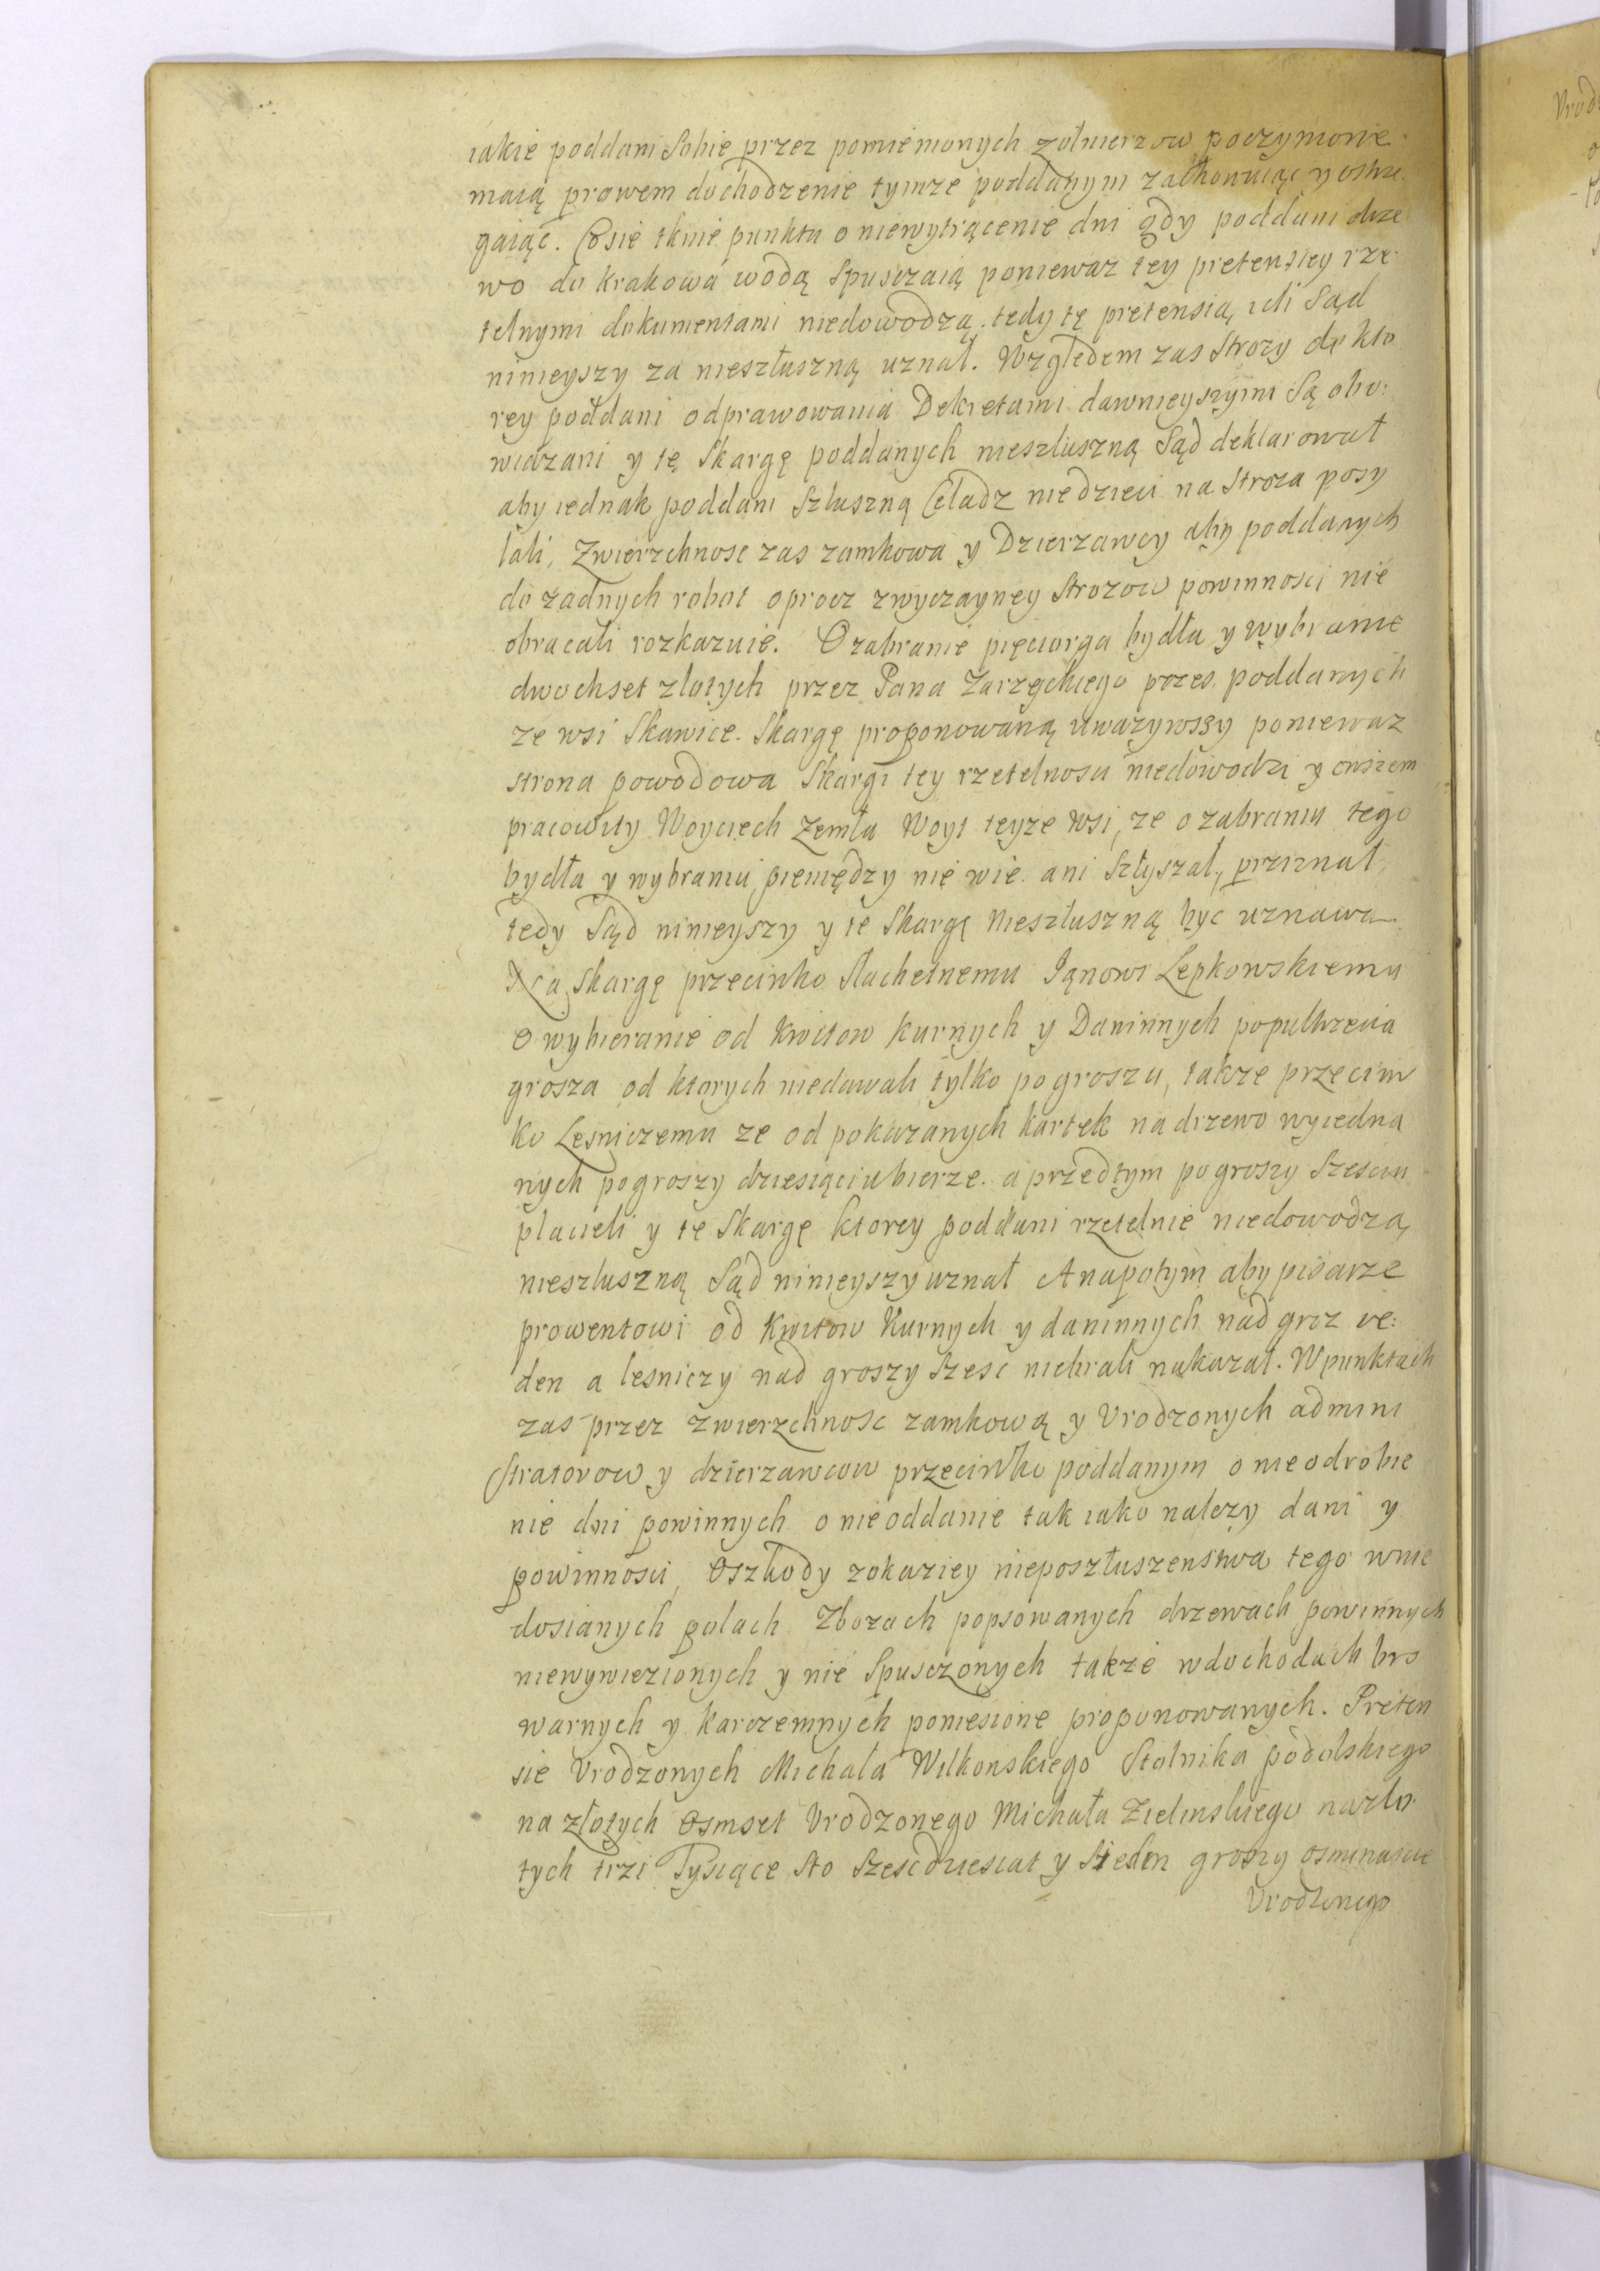 iakie poddani Sobie przez pomienionych zołnierzow poczynione
maią prawem dochodzenie tymze poddanym zachowuiąc y ostrze
gaiąc. Co się tknie punktu o niewytrącenie dni gdy poddani drze
wo do Krakowa wodą Spuszczaią poniewaz tey pretensiey rze
telnymi dokumentami niedowodzą tedy tę pretensią ich Sąd
ninieyszy za niesłuszną uznał. Względem zas Strozy do kto
rey poddani odprawowania Dekretami dawnieyszymi Są obo:
wiązani y tę Skargę poddanych nieszłuszną Sąd deklarował
aby iednak poddani Szłuszną Czeladz niedzieci na Stroza posy
łali, Zwierzchnosc zas zamkowa y Dzierzawcy aby poddanych
do zadnych robot oprocz zwyczayney Strozow powinnosci nie
obracali rozkazuie. O zabranie pięciorga bydła y wybranie
dwochset złotych przez Pana Zarzęckiego przes poddanych
ze wsi Skawice Skargę proponowaną uwazywszy poniewaz
strona powodowa Skargi tey rzetelnosci niedowodzi y owszem
pracowity Woyciech Zemła Woyt teyze wsi, ze o zabraniu tego
bydła y wybraniu pieniędzy nie wie ani Szłyszał, przyznał,
tedy Sąd ninieyszy y te Skargę nieszłuszną byc uznawa
Na Skargę przeciwko Slachetnemu Janowi Lepkowskiemu
O wybieranie od kwitow kurnych y Daninnych popułtrzecia
grosza od ktorych niedawali tylko po groszu, takze przeciw
ko Lesniczemu ze od pokazanych kartek na drzewo wyiedna
nych pogroszy dziesiąciu bierze. a przedtym po groszy Szesciu
płacieli y te Skargę ktorey poddani rzetelnie niedowodzą
nieszłuszną Sąd ninieyszy uznał A napotym aby pisarze
prowentowi od kwitow Kurnych y daninnych nad grosz ie:
den a lesniczy nad groszy Szesc niebrali nakazał. W punktach
zas przez zwierzchnosc zamkową y Urodzonych admini
Stratorow y dzierzawcow przeciwko poddanym o nieodrobie
nie dni powinnych o nieoddanie tak iako nalezy dani y
powinnosci, O szkody z okaziey nieposzłuszenstwa tego w nie
dosianych polach Zbozach popsowanych drzewach powinnych
niewywiezionych y nie Spuszczonych takze w dochodach bro
warnych y karczemnych poniesione proponowanych. Preten
sie Urodzonych Michała Wilkonskiego Stolnika podolskiego
na złotych osmset Urodzonego Michała Zielinskiego na zło
tych trzi Tysiące Sto Szescdziesiat y Siedm groszy osmnascie
Urodzonego